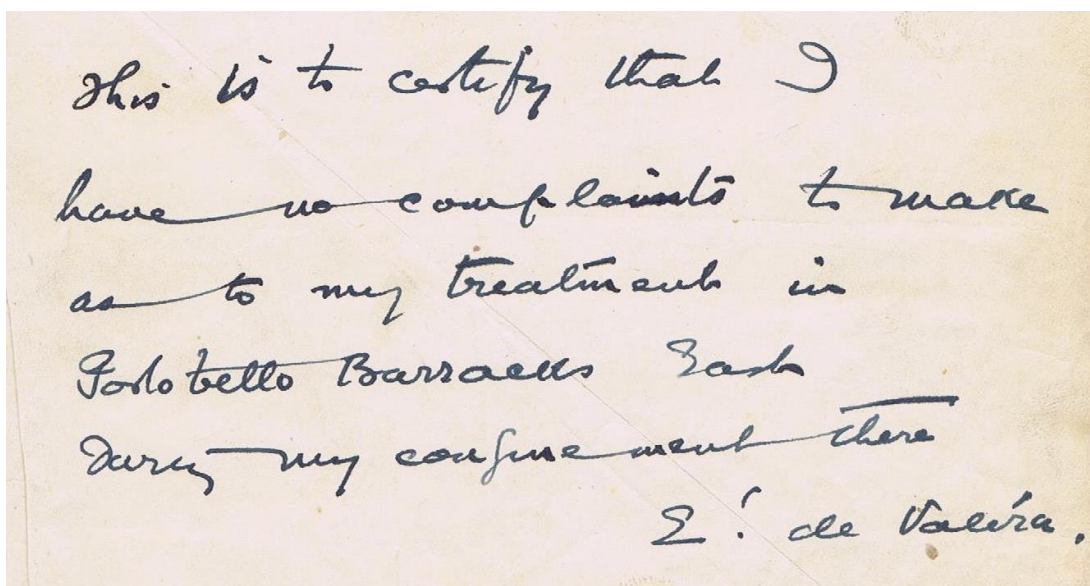 This is to certify that I
have no complaints to make
as to my treatment in
Portobello Barracks East
During my confinement there
E. de Valéra.